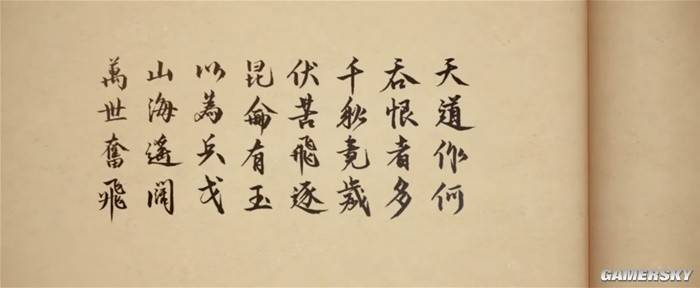 天道似何
吞恨者多
千秋竟歲
伏苦飛逐
昆侖有玉
以為兵戈
山海遙闊
萬世奮飛
GAMERSKY